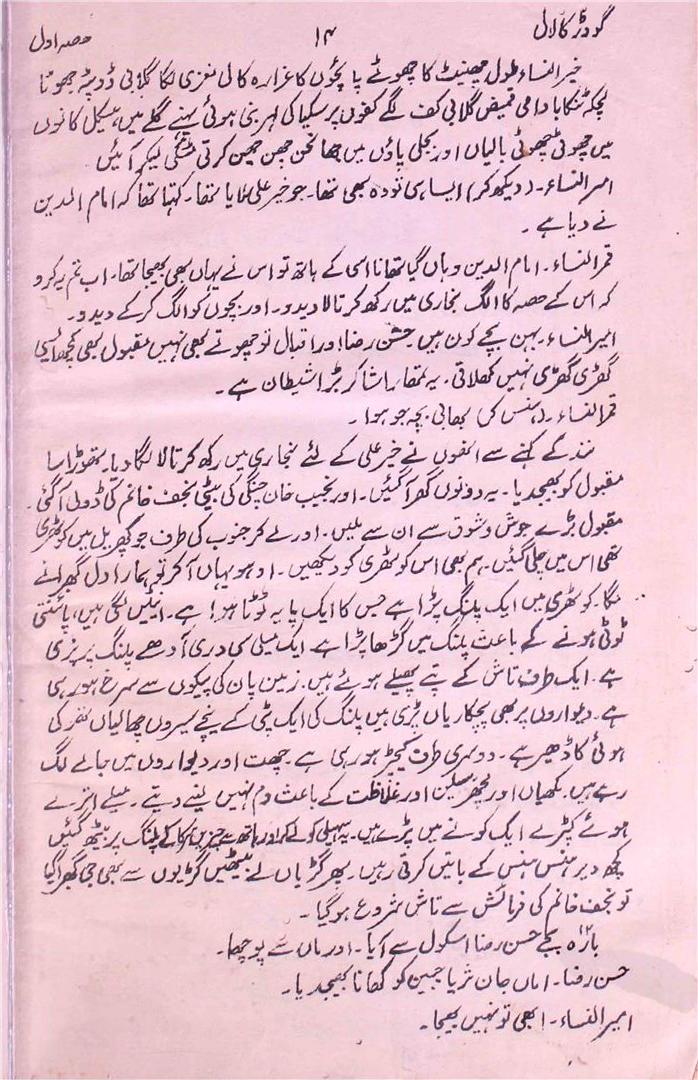 گودڑ کا لال ۱۴ حصہ اول
خیر النساء طول چھینٹ کا چھوٹے پائچوں کا غرارہ کالی مغزی لگا گلابی ڈوپٹہ چھوٹا
لچکہ ٹنکا بادامی قمیض گلابی کف لگے کفوں پر سکیا کی لہر بنی ہوئی پہنے گلے میں ہیکل کانوں
میں چھوٹی چھوٹی بالیاں اور بجلی پاؤں میں جھانجن چھن چھن کرتی مٹکی لیکر آئیں
امیر النساء۔ (دیکھ کر) ایسا ہی تو وہ بھی تھا۔ جو خیر علی لایا تھا۔ کہتا تھا کہ امام الدین
نے دیا ہے۔
قمر النساء۔ امام الدین وہاں گیا تھا نا اسی کے ہاتھ تو اس نے یہاں بھی بھیجا تھا۔ اب تم یہ کرو
کہ اس کے حصہ کا الگ بخاری میں رکھ کر تالا دیدو۔ اور بچوں کو الگ کر کے دیدو۔
امیر النساء۔ بہن بچے کون ہیں حسن رضا اور اقبال تو چھوتے بھی نہیں مقبول بھی کچھ ایسی
گھڑی گھڑی نہیں کھلاتی۔ یہ تمھارا شاکر بڑا شیطان ہے۔
قمر النساء۔ (ہنس کر) بھابی بچہ جو ہوا۔
نند کے کہنے سے انھوں نے خیر علی کے لئے بخاری میں رکھ کر تالا لگا دیا۔ تھوڑا سا
مقبول کو بھیجدیا۔ یہ دونوں گھر آ گئیں۔ اور نجیب خان جنگی کی بیٹی نجف خانم کی ڈولی آگئی۔
مقبول بڑے جوش و شوق سے ان سے ملیں۔ اور لے کر جنوب کی طرف جو کھپریل میں کوٹھری
تھی اس میں چلی گئیں۔ ہم بھی اس کوٹھری کو دیکھیں۔ اوہو یہاں آ کر تو ہمارا دل گھبرانے
لگا۔ کوٹھری میں ایک پلنگ پڑا ہے جس کا ایک پایہ ٹوٹا ہوا ہے۔ اینٹیں لگی ہیں، پائنتی
ٹوٹی ہونے کے باعث پلنگ میں گڑھا پڑا ہے ایک میلی سی دری آدھے پلنگ پر پڑی
ہے۔ ایک طرف تاش کے پتے پھیلے ہوئے ہیں۔ زمین پان کی پیکوں سے سرخ ہو رہی
ہے۔ دیواروں پر بھی پچکاریاں پڑی ہیں پلنگ کی ایک پٹی کے نیچے سیروں چھالیاں کتر کی
ہوئی کا ڈھیر ہے۔ دوسری طرف کیچڑ ہو رہی ہے۔ چھت اور دیواروں میں جالے لگ
رہے ہیں۔ مکھیاں اور مچھر سیلن اور غلاظت کے باعث دم نہیں لینے دیتے۔ میلے اترے
ہوئے کپڑے ایک کونے میں پڑے ہیں۔ یہ سہیلی کو لے کر اور ہاتھ سے چیزیں سرکا کے پلنگ پر بیٹھ گئیں
کچھ دیر ہنس ہنس کے باتیں کرتی رہیں۔ پھر گڑیاں لے بیٹھیں گڑیوں سے بھی جی گھبرا گیا
تو نجف خانم کی فرمائش سے تاش شروع ہو گیا۔
بارہ بجے حسن رضا اسکول سے آیا۔ اور ماں سے پوچھا۔
حسن رضا۔ اماں جان ثریا جبین کو کھانا بھیجدیا۔
امیر النساء۔ ابھی تو نہیں بھیجا۔